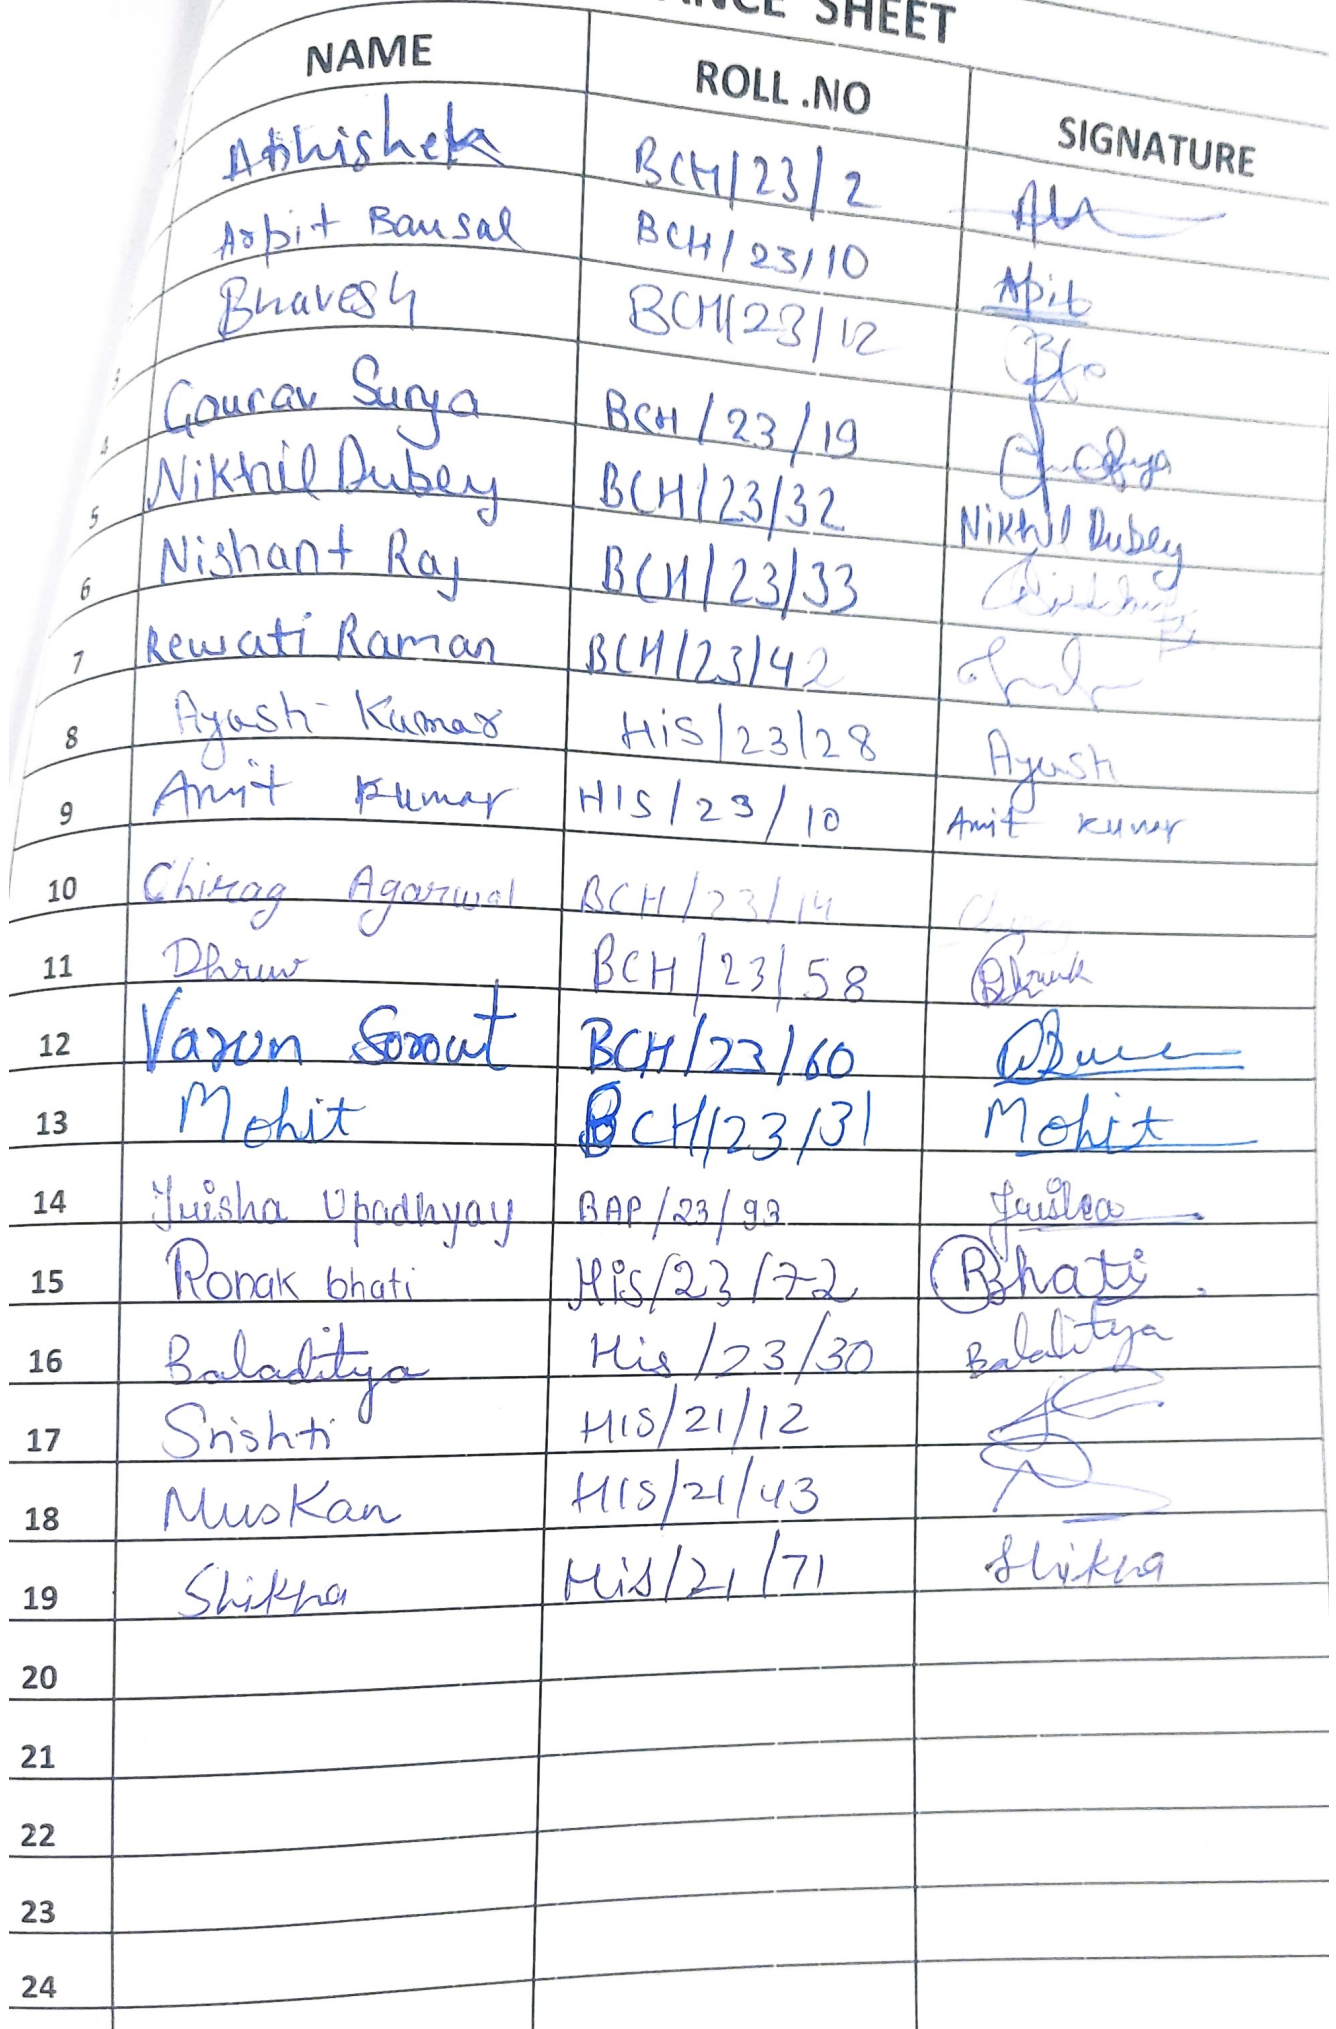 SHEET
NAME ROLL .NO SIGNATURE
Abhishek BCH/23/2
Arpit Bansal BCH/23/10 Apit
Bhavesh BCH/23/12
Gourav Surya BCH/23/19
Nikhil Dubey BCH/23/32 Nikhil Dubey
5
6 Nishant Raj BCH/23/33
7 Rewati Raman BCH/23/42
8 Ayush Kumar HiS/23/28 Ayush
9 Amit Kumar HIS/23/10 Amit Kumar
10 Chirag Agarwal BCH/23/14
11 Dhruv BCH/23/58
12 Varun Sorout BCH/23/60
13 Mohit BCH/23/31 Mohit
14 Upadhyay BAP/23/93
15 Ronak bhati His/23/72 Bhati
16 Baladitya His/23/30 Baladitya
17 Srishti HIS/21/12
18 Muskan HIS/21/43
19 Shikha HiS/21/71 Shikha
20
21
22
23
24